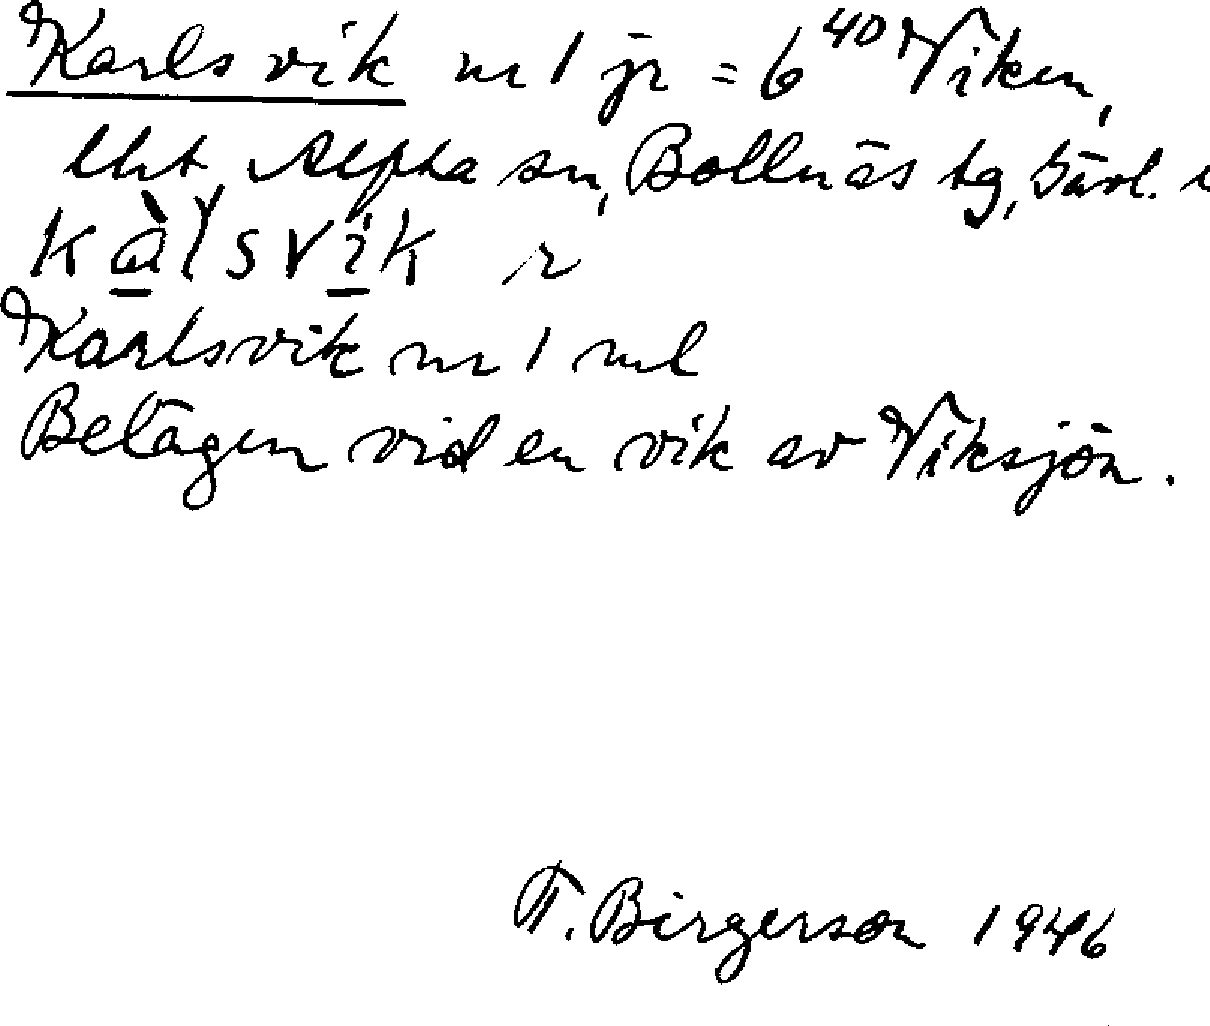 Karlsvik nr 1 jr = 6⁴⁰ Viken,
lht, Alfta sn, Bollnäs tg, Gävl.
kàl̀svik r
Karlsvik nr 1 ml
Belägen vid en vik av Viksjön.
F. Birgerson 1946